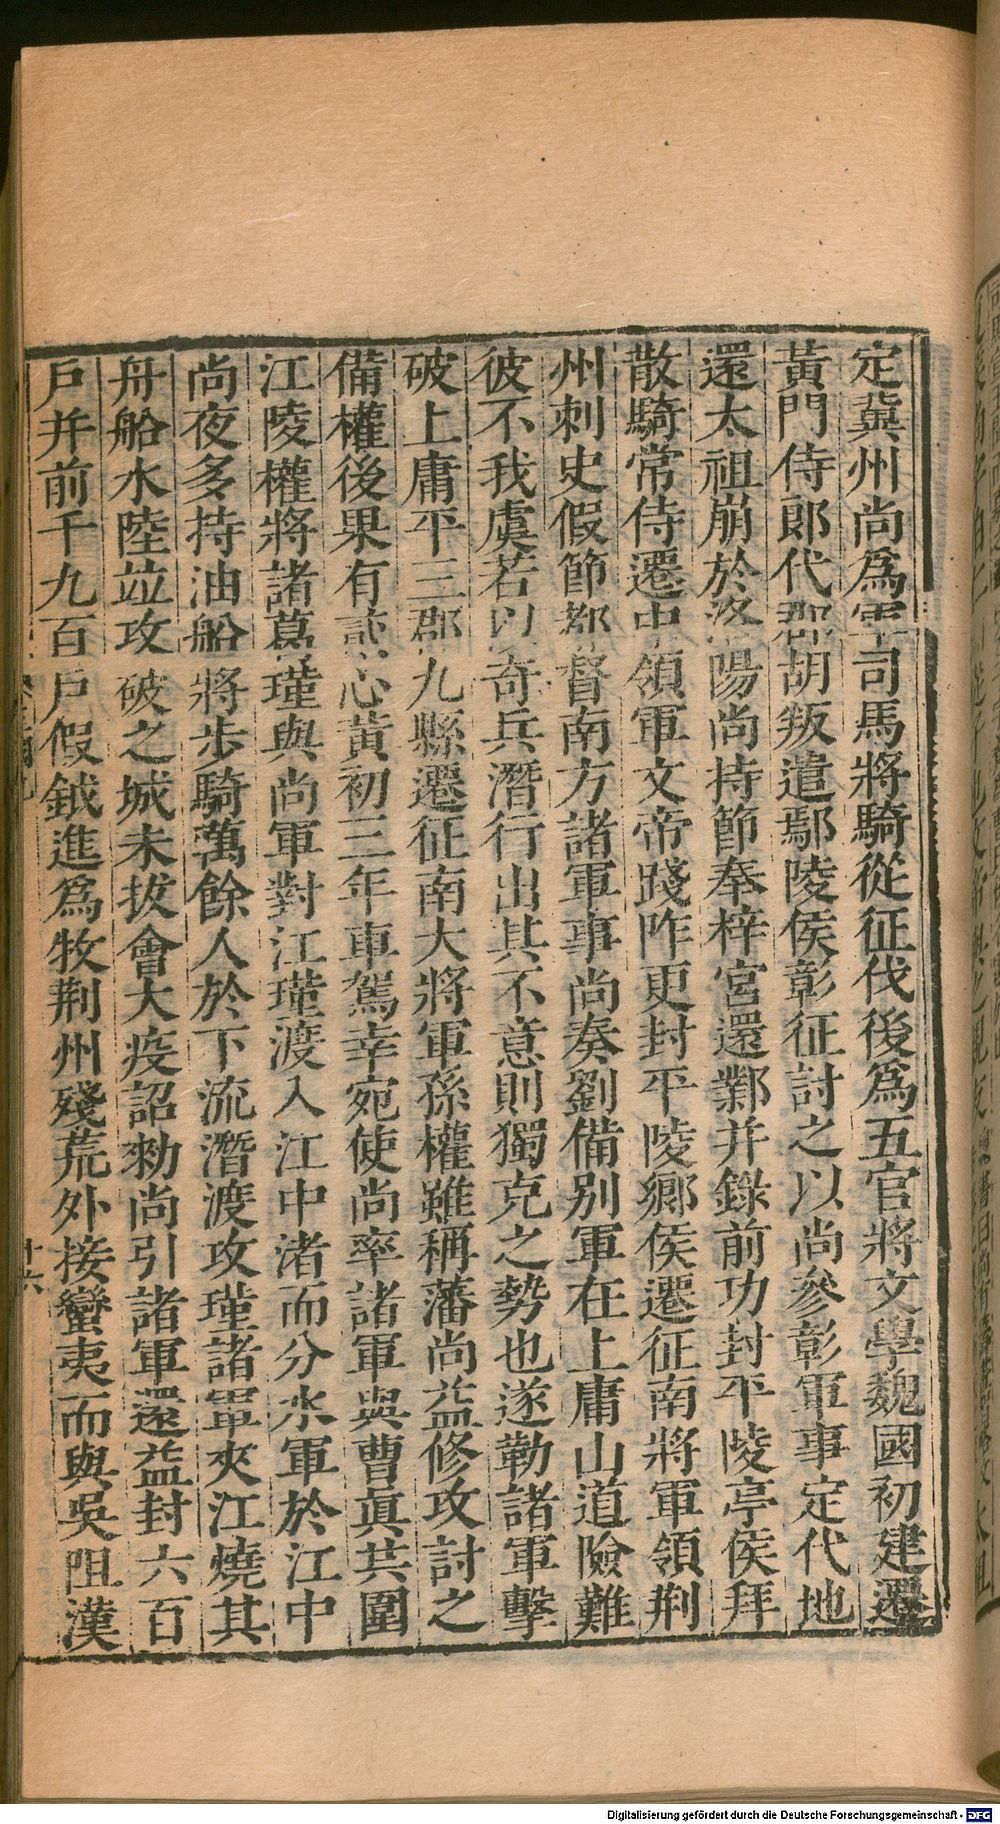 定冀州尚爲軍司馬將騎從征伐後爲五官將文學魏國初建遷
黃門侍郎代郡胡叛遣鄢陵侯彰征討之以尚參彰軍事定代地
還太祖崩於洛陽尚持節奉梓宮還鄴并錄前功封平陵亭侯拜
散騎常侍遷中領軍文帝踐阼更封平陵鄉侯遷征南將軍領荆
州刺史假節都督南方諸軍事尚奏劉備别軍在上庸山道險難
彼不我虞若以奇兵潛行出其不意則獨克之勢也遂勒諸軍擊
破上庸平三郡九縣遷征南大將軍孫權雖稱藩尚益修攻討之
備權後果有貳心黃初三年車駕幸宛使尚率諸軍與曹眞共圍
江陵權將諸葛瑾與尚軍對江瑾渡入江中渚而分水軍於江中
尚夜多持油船將步騎萬餘人於下流潛渡攻瑾諸軍夾江燒其
舟船水陸竝攻破之城未拔會大疫詔勑尚引諸軍還益封六百
戶并前千九百戶假鉞進爲牧荆州殘荒外接蠻夷而與吳阻漢
十六
Digitalisierung gefördert durch die Deutsche Forschungsgemeinschaft - DFG